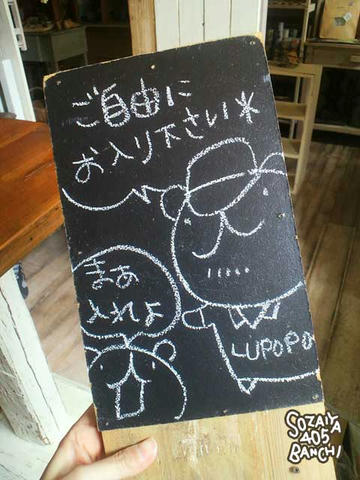 ご自由に
お入り下さい*
まあ
入れよ
LUPOPO
SOZAIYA
405
BANCHI